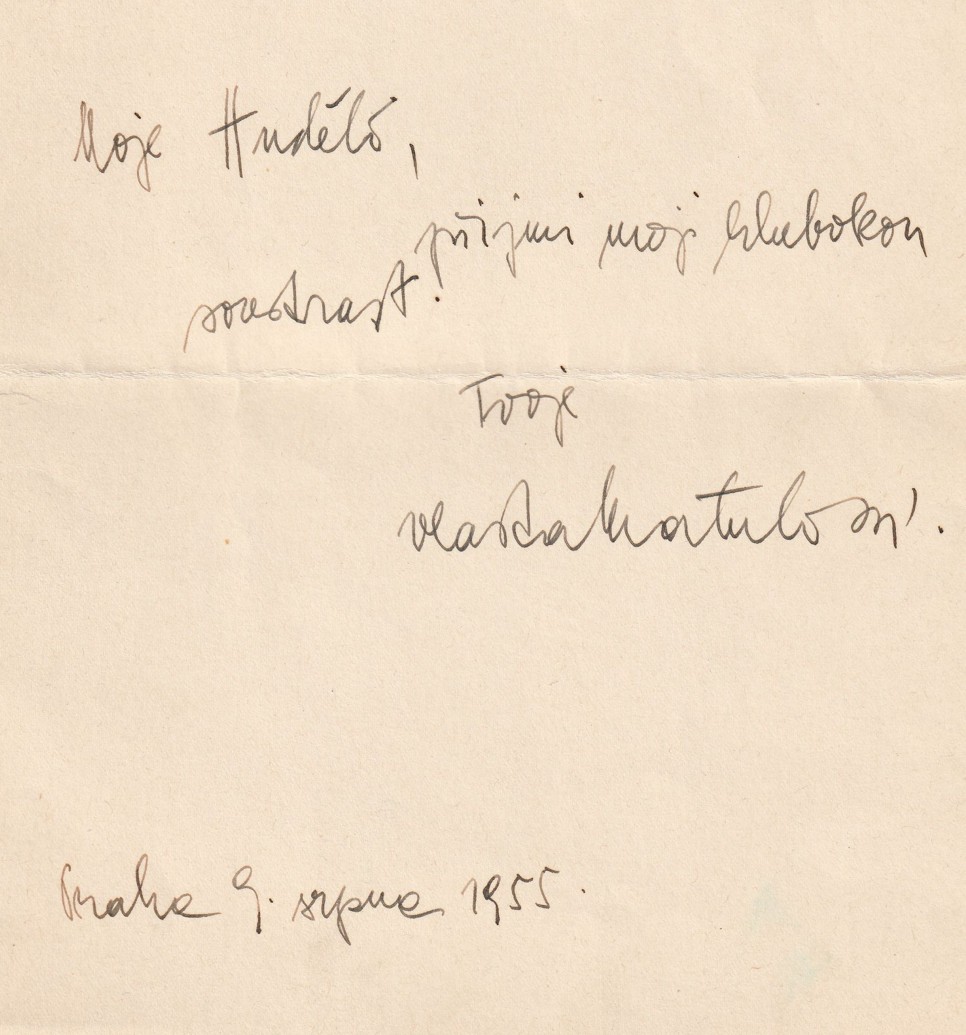 Moje
přijmi moji hlubokou
soustrast.
Tvoje
Vlasta Matulová.
Praha 9. srpna 1955.